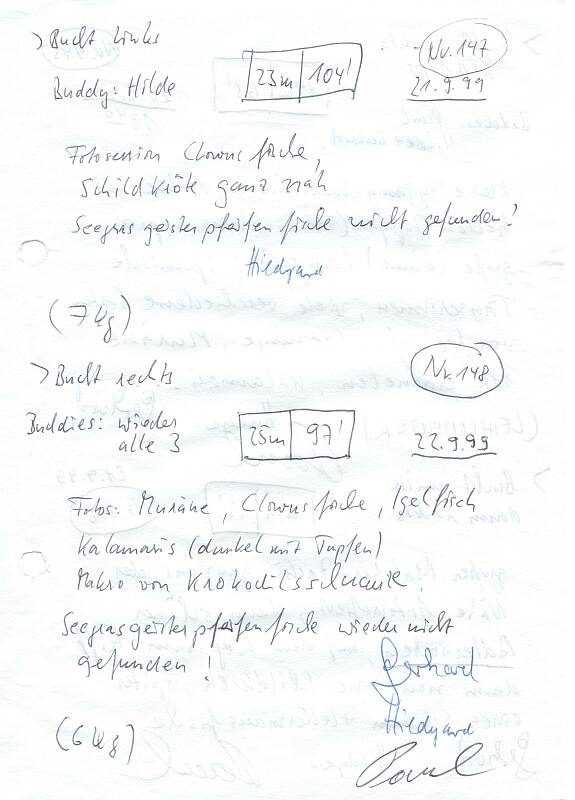 > Bucht links
Nr. 147
Buddy: Hilde
23m | 104'
21.9.99
Fotosession Clownsfische,
Schildkröte ganz nah
Seegrasgeisterpfeifenfische nicht gefunden!
Hildgard
(7 kg)
> Bucht rechts
Nr. 148
Buddies: wieder
alle 3
25m | 97'
22.9.99
Fotos: Muräne, Clownsfische, Igelfisch
Kalamaris (dunkel mit Tupfen)
Makro von Krokodilsschnauze!
Seegrasgeisterpfeifenfische wieder nicht
gefunden!
Gerhard
Hildgard
(6 kg)
Paul